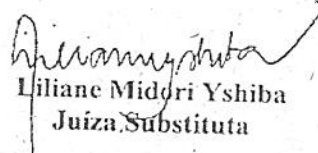 Liliane Midori Yshiba
Juíza Substituta